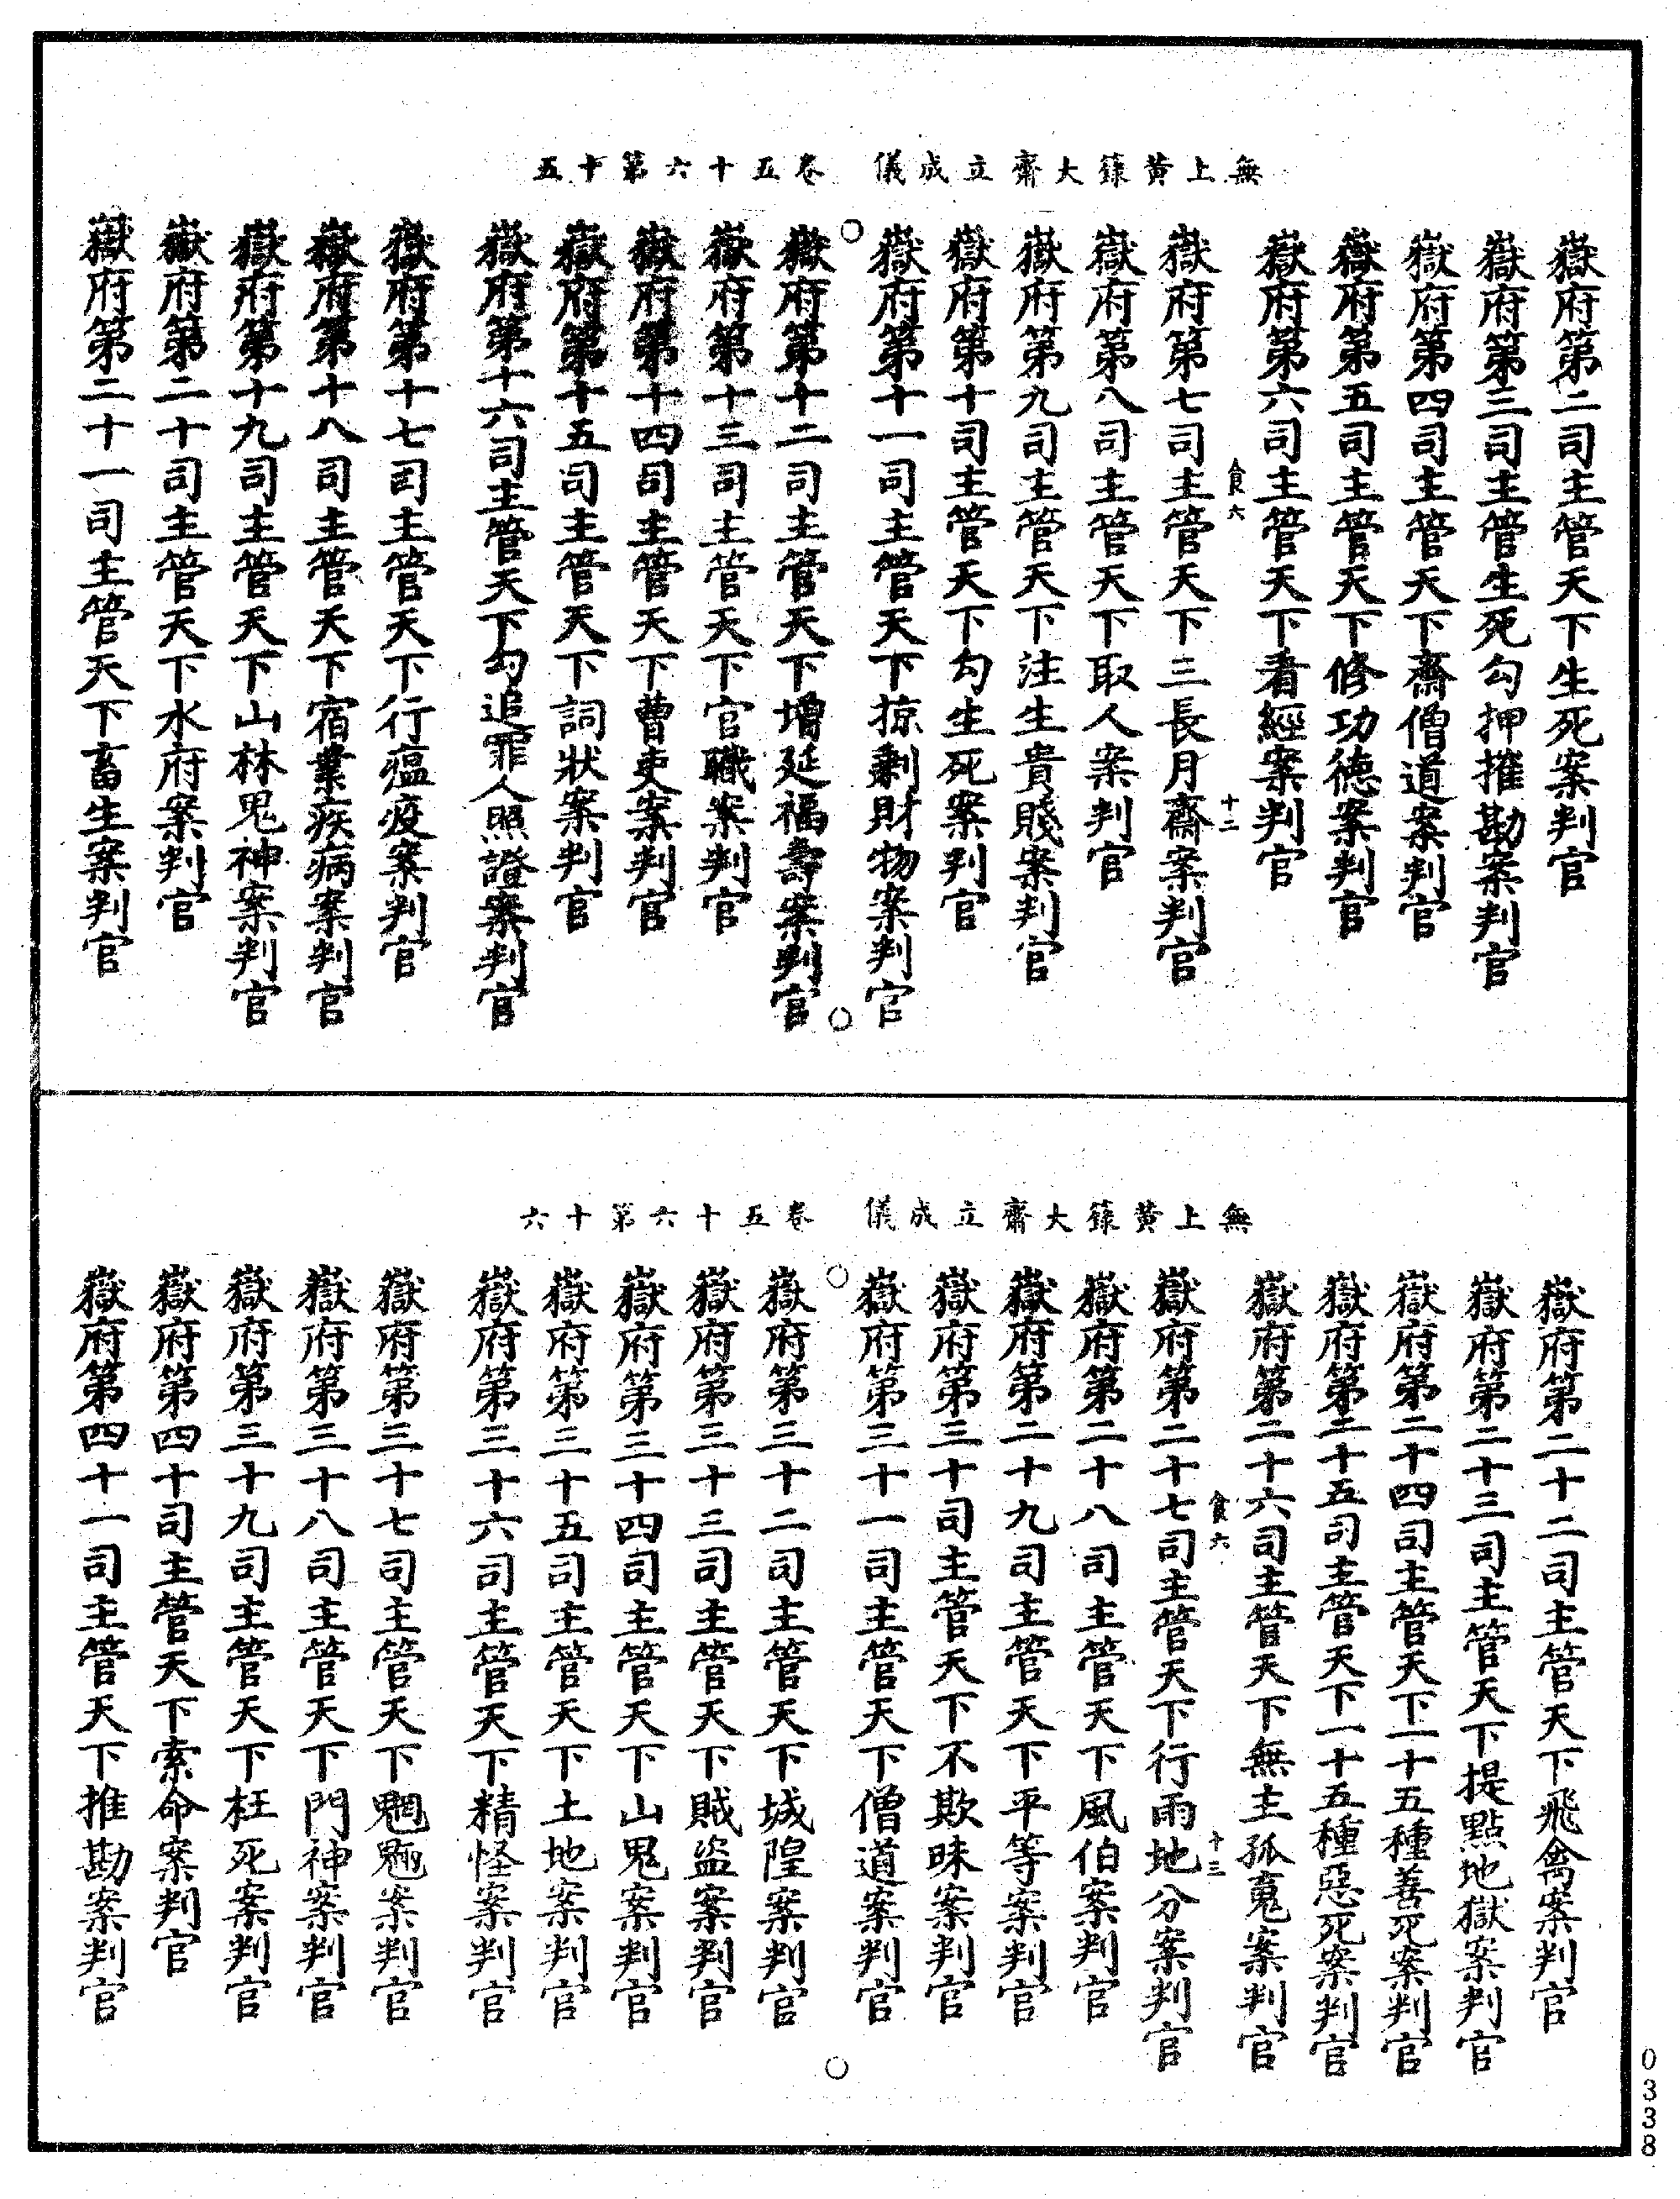 無上黃籙大齋立成儀　卷五十六第十五
嶽府第二司主管天下生死案判官
嶽府第三司主管生死勾押推勘案判官
嶽府第四司主管天下齋僧道案判官
嶽府第五司主管天下修功德案判官
嶽府第六司主管天下看經案判官
食六　十二
嶽府第七司主管天下三長月齋案判官
嶽府第八司主管天下取人案判官
嶽府第九司主管天下注生貴賤案判官
嶽府第十司主管天下勾生死案判官
嶽府第十一司主管天下掠剩財物案判官
嶽府第十二司主管天下增延福壽案判官
嶽府第十三司主管天下官職案判官
嶽府第十四司主管天下曹吏案判官
嶽府第十五司主管天下詞狀案判官
嶽府第十六司主管天下勾追罪人照證案判官
嶽府第十七司主管天下行瘟疫案判官
嶽府第十八司主管天下宿業疾病案判官
嶽府第十九司主管天下山林鬼神案判官
嶽府第二十司主管天下水府案判官
嶽府第二十一司主管天下畜生案判官
無上黃籙大齋立成儀　卷五十六第十六
嶽府第二十二司主管天下飛禽案判官
嶽府第二十三司主管天下提點地獄案判官
嶽府第二十四司主管天下一十五種善死案判官
嶽府第二十五司主管天下一十五種惡死案判官
嶽府第二十六司主管天下無主孤䰟案判官
食六　十三
嶽府第二十七司主管天下行雨地分案判官
嶽府第二十八司主管天下風伯案判官
嶽府第二十九司主管天下平等案判官
嶽府第三十司主管天下不欺昧案判官
嶽府第三十一司主管天下僧道案判官
嶽府第三十二司主管天下城隍案判官
嶽府第三十三司主管天下賊盜案判官
嶽府第三十四司主管天下山鬼案判官
嶽府第三十五司主管天下土地案判官
嶽府第三十六司主管天下精怪案判官
嶽府第三十七司主管天下魍魎案判官
嶽府第三十八司主管天下門神案判官
嶽府第三十九司主管天下枉死案判官
嶽府第四十司主管天下索命案判官
嶽府第四十一司主管天下推勘案判官
0338